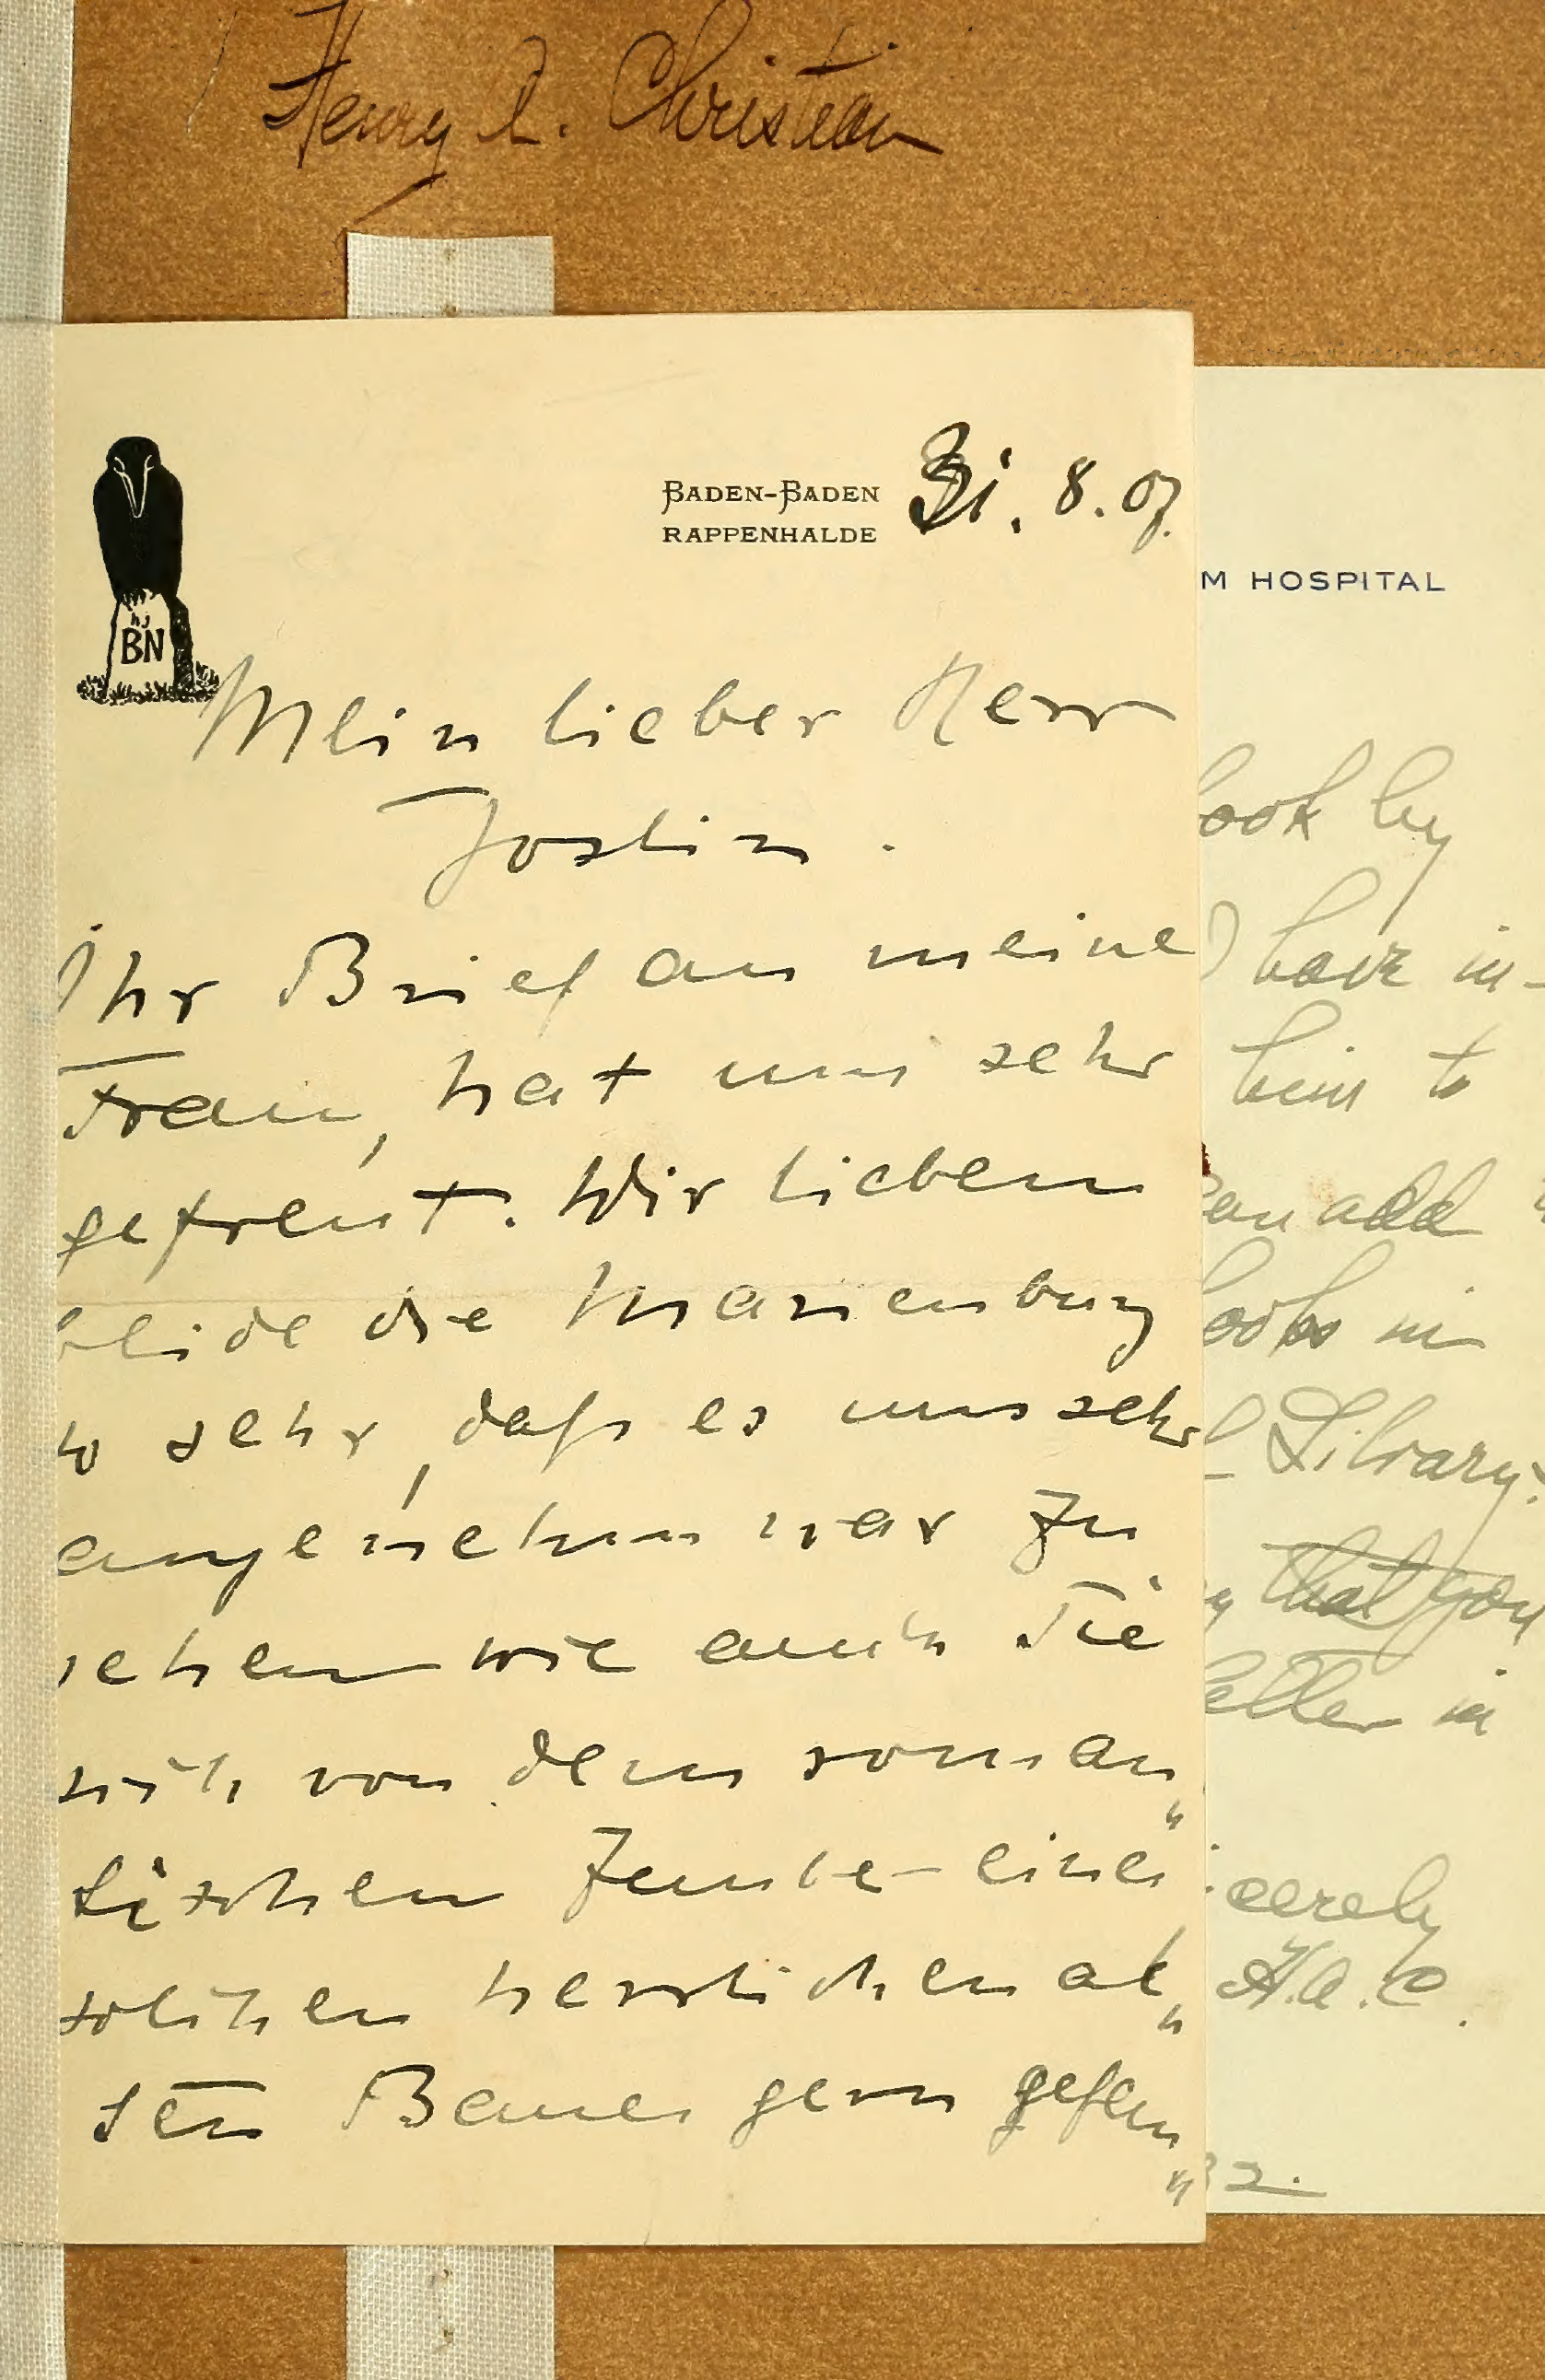 Henry A. Christian
BADEN-BADEN
RAPPENHALDE
31. 8. 07.
BN
Mein lieber Herr
Joslin.
Ihr Brief an meine
Frau, hat uns sehr
gefreut. Wir lieben
beide die Marienburg
so sehr, daß es uns sehr
angenehm war zu
sehen wie auch Sie
sich von dem roman„
tischen Zauber eines
solchen herrlichen al„
ten Baues gern gefan„
M HOSPITAL
ook by
have in-
him to
can add
ooks in
Library.
that you
letter in
cerely
H.A.C.
32.